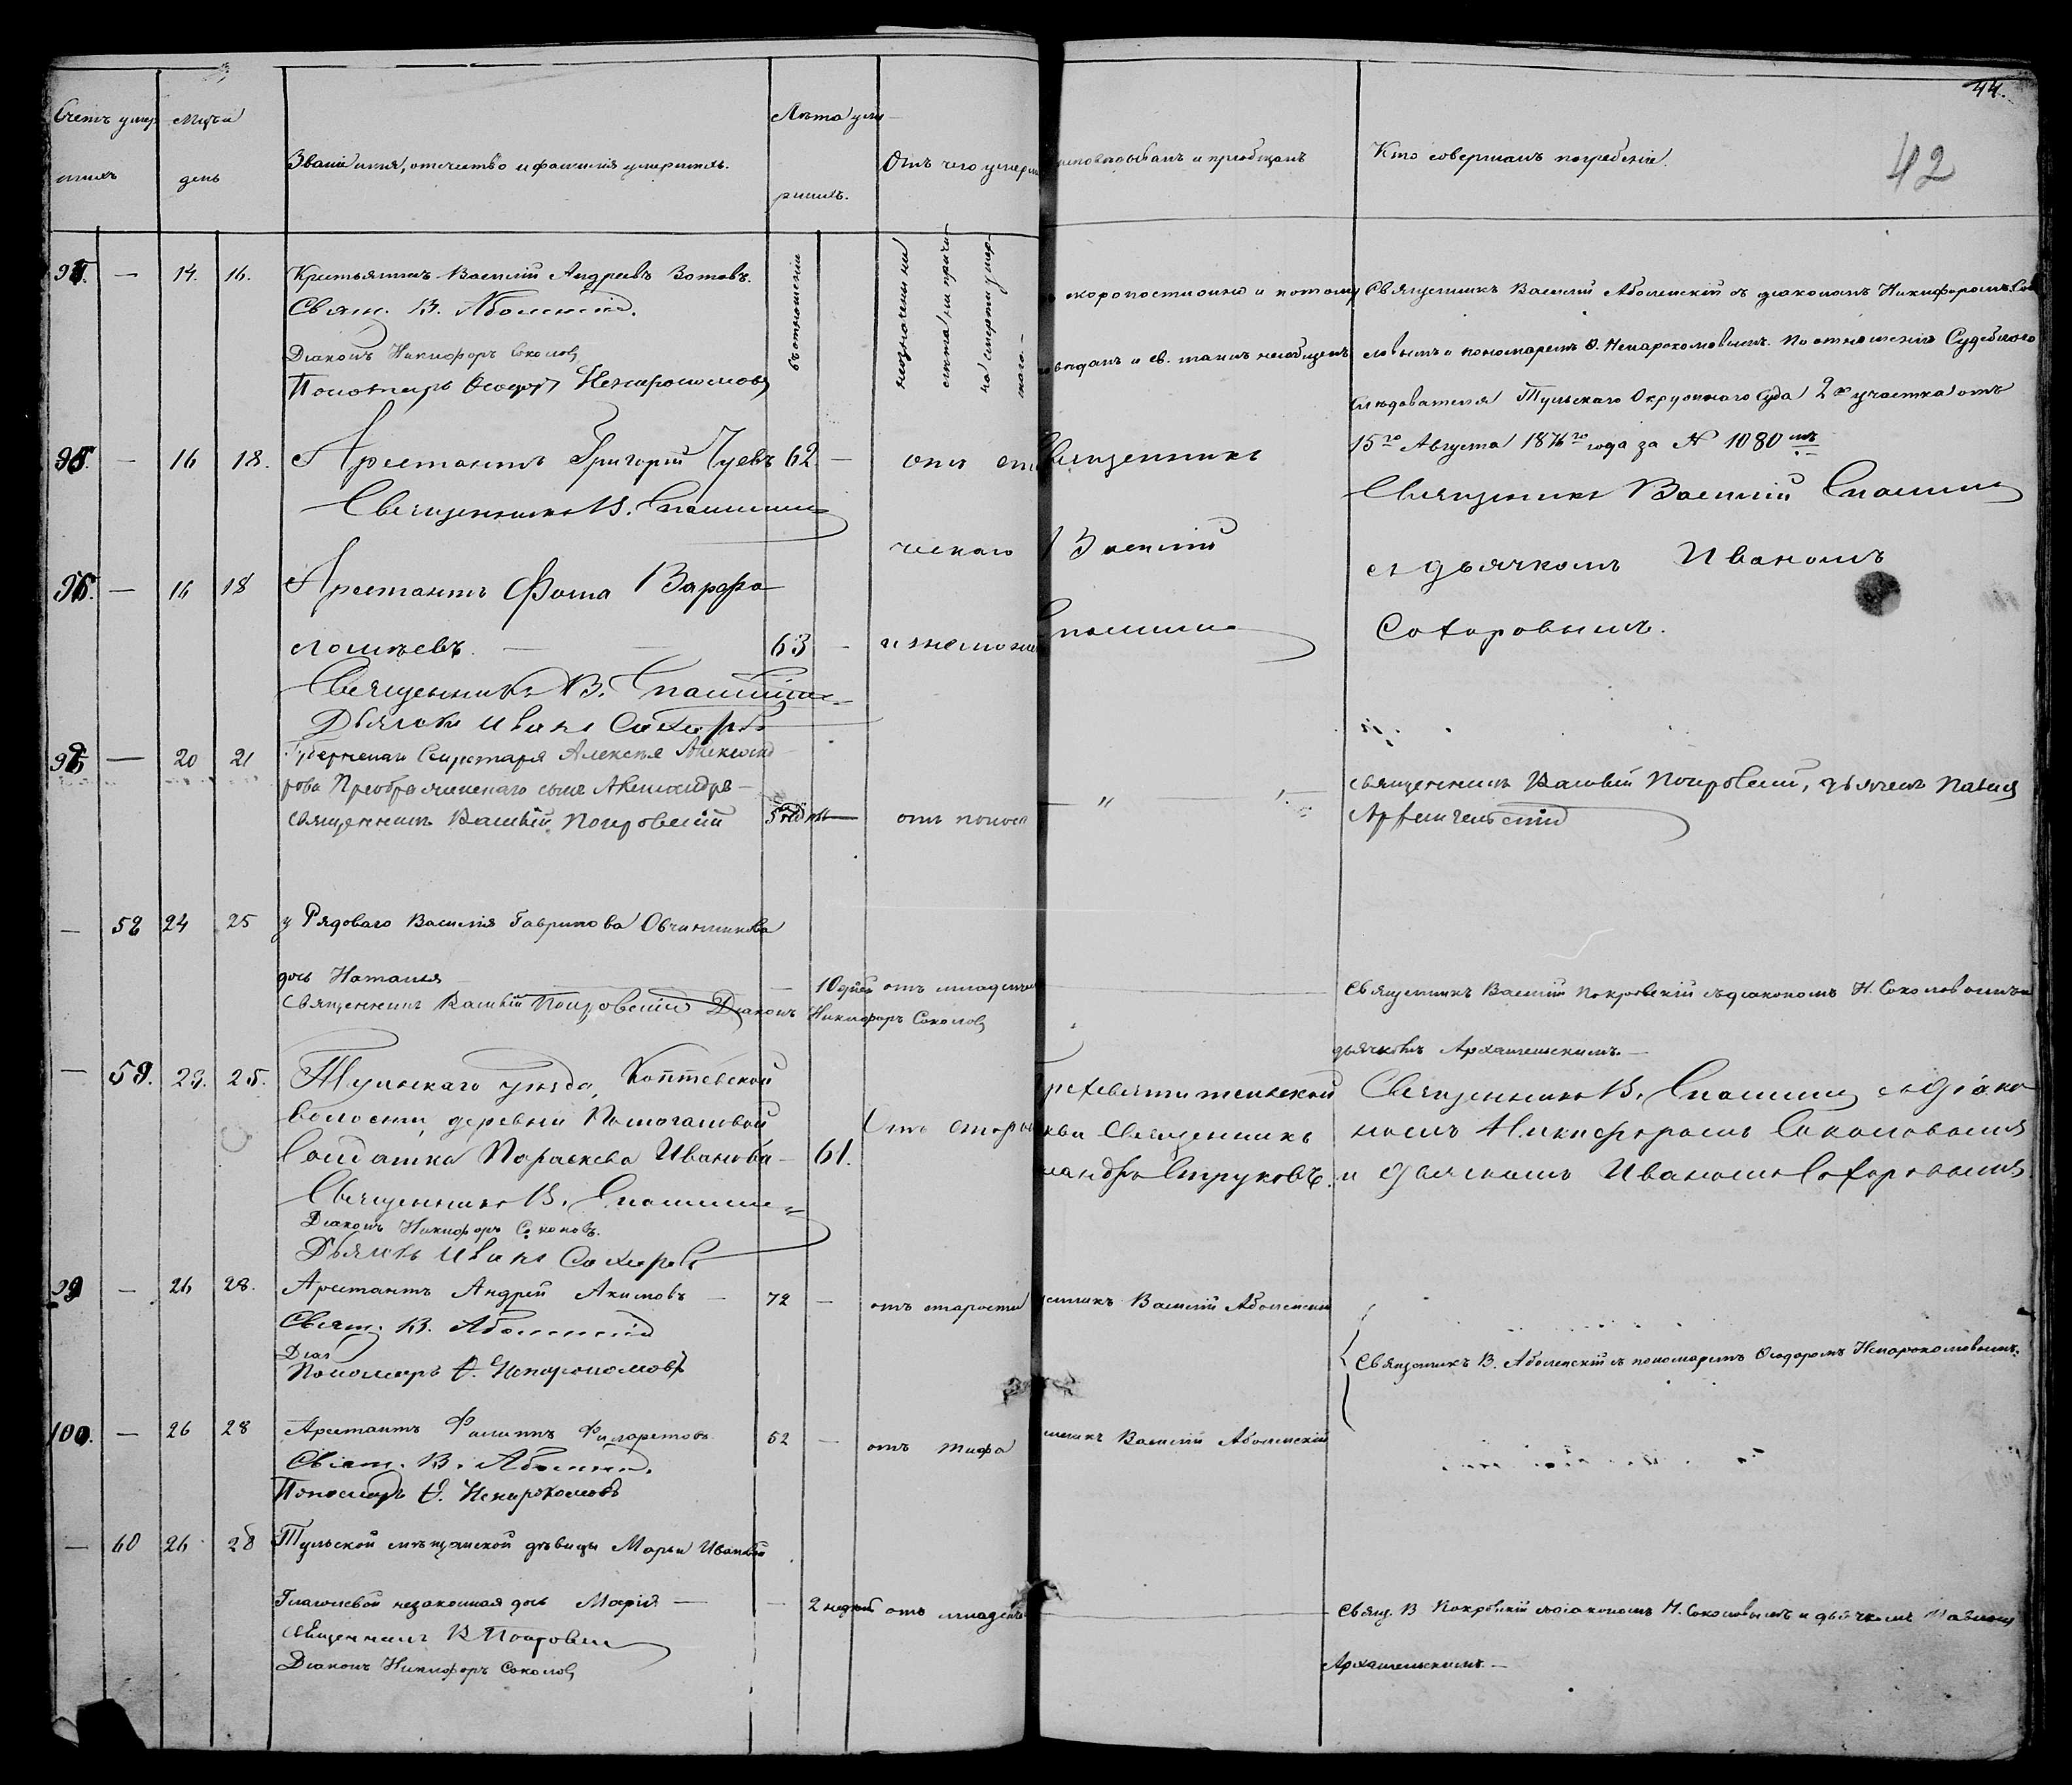 44.
42
Счетъ умер-
шихъ
Мцъ и
день
Званіе имя, отчество и фамилія умершихъ.
Лѣта уме-
ршихъ.
Отъ чего умерли
исповѣдывалъ и пріобщалъ
Кто совершалъ погребеніе.
— 14. 16. Крестьянинъ Василій Андреевъ Зотовъ.
Свящ. В. Аболенскій.
Діаконъ Никифоръ Соколовъ
Пономарь Ѳеодоръ Непарокомовъ
въ отношеніи
неозначены ни
лѣта, ни причи-
на смерти умер-
шаго.—
скоропостижно и потому
и св. таинъ непріобщенъ
Священникъ Василій Аболенскій съ діакономъ Никифоромъ Соко-
ловымъ и пономаремъ Ѳ. Непарокомовымъ. По отношенію Судебнаго
Слѣдователя Тульскаго Окружнаго Суда 2го участка отъ
15го Августа 1876го года за № 1080мъ
95. — 16 18. Арестантъ Григорій Чуевъ 62. —
Священникъ В. Спасскій
отъ
ческаго
изнеможе
Священникъ
Василій
Спасскій
Священникъ Василій Спасскій
съ дьячкомъ Иваномъ
Сахаровымъ.
96. — 16 18 Арестантъ Фома Варфо-
ломѣевъ. — — 63 —
Священникъ В. Спасскій
Дьячокъ Иванъ Сахаровъ
— 20 21 Губернскаго Секретаря Алексѣя Александ-
рова Преображенскаго сынъ Александръ —
священникъ Василій Покровскій
5 нед. — отъ понос
— " —
священникъ Василій Покровскій, дьячекъ Павелъ
Архангельскій
— 58 24 25 у Рядоваго Василія Гаврилова Овчинникова
дочь Наталья — — 10 дней отъ младенч
священникъ Василій Покровскій Діаконъ Никифоръ Соколовъ
Священникъ Василій Покровскій съ діакономъ Н. Соколовымъ и
дьячкомъ Архангельскимъ.—
— 59. 23. 25. Тульскаго уѣзда, Коптевской
волости, деревни
Солдатка Параскева Иванова — 61.
Священникъ В. Спасскій
Діаконъ Никифоръ Соколовъ.
Дьячокъ Иванъ Сахаровъ
Отъ старос
рехсвятительской
кви Священникъ
сандръ Струковъ.
Священникъ В. Спасскій съ діако-
номъ Никифоромъ Соколовымъ
и дьячкомъ Иваномъ Сахаровымъ
99 — 26 28. Арестантъ Андрей Акимовъ — 72 — отъ старости
Свящ. В. Аболенскій
Діак
Пономарь Ѳ. Непарокомовъ
щенникъ Василій Аболенскій
Священникъ В. Аболенскій съ пономаремъ Ѳеодоромъ Непарокомовымъ.
100. — 26 28 Арестантъ Филиппъ Филаретовъ 52 — отъ тифа
Свящ. В. Аболенскій.
Пономарь Ѳ. Непарокомовъ
щенникъ Василій Аболенскій
— 60 26 28 Тульской мѣщанской дѣвицы Марьи Ивановой
незаконная дочь Марія — — 2 недѣль отъ младенч
священникъ В Покровскій
Діаконъ Никифоръ Соколовъ
Свящ. В Покровскій съ діакономъ Н. Соколовымъ и дьячкомъ Павломъ
Архангельскимъ.—